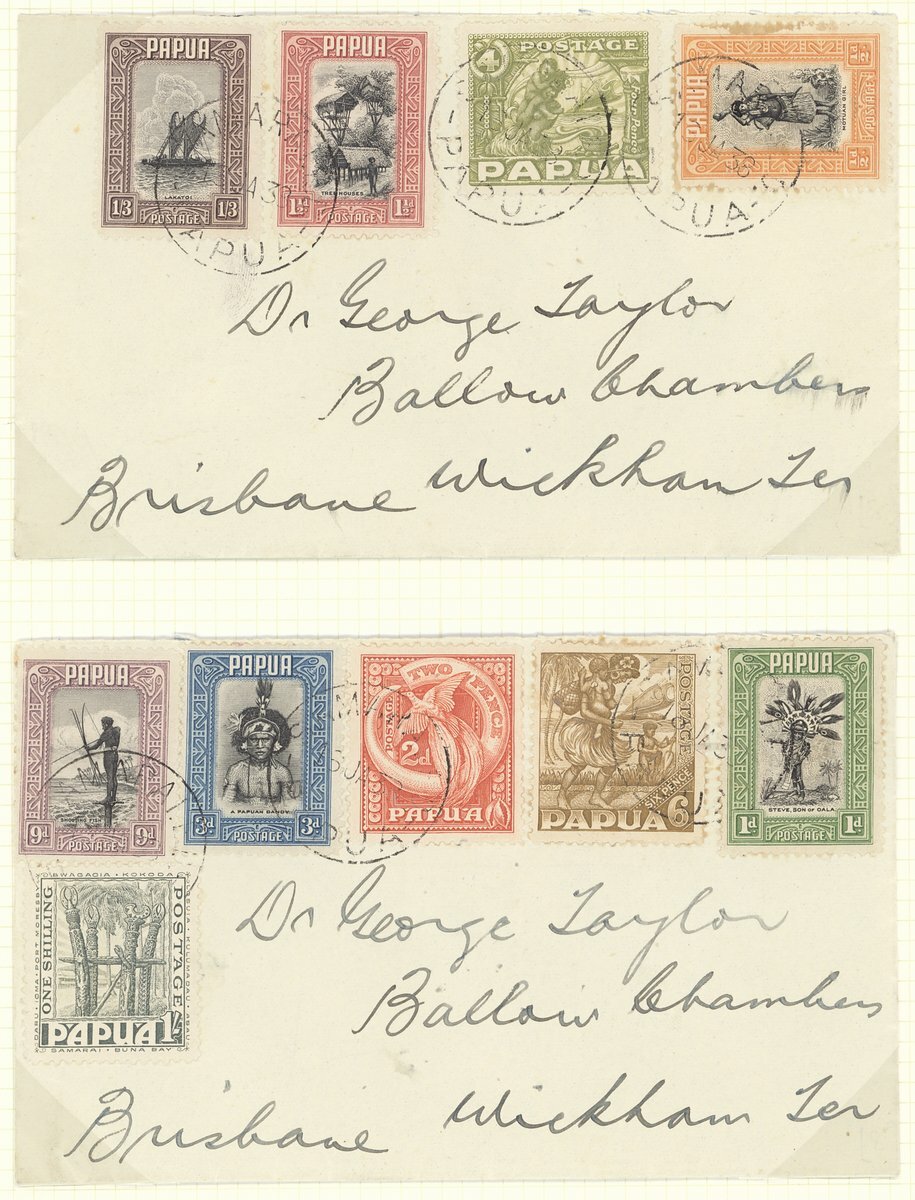 PAPUA
1/3 LAKATOI 1/3
POSTAGE
PAPUA
TREE HOUSES
1½d POSTAGE 1½d
4 POSTAGE
Four Pence
PAPUA
PAPUA
MOTUAN GIRL
½d POSTAGE ½d
PAPUA
PAPUA
PAPUA
Dr George Taylor
Ballow Chambers
Brisbane Wickham Ter
PAPUA
SHOOTING FISH
9d POSTAGE 9d
PAPUA
A PAPUAN DANDY
3d POSTAGE 3d
TWO PENCE
POSTAGE
2d
PAPUA
POSTAGE
SIX PENCE
PAPUA 6
PAPUA
STEVE, SON OF OALA
1d POSTAGE 1d
BWAGAOIA · KOKODA
DARU · IOMA · PORT MORESBY
ONE SHILLING
POSTAGE
LOSUIA · KULUMADAU · ABAU
PAPUA 1/-
SAMARAI · BUNA BAY
Dr George Taylor
Ballow Chambers
Brisbane Wickham Ter